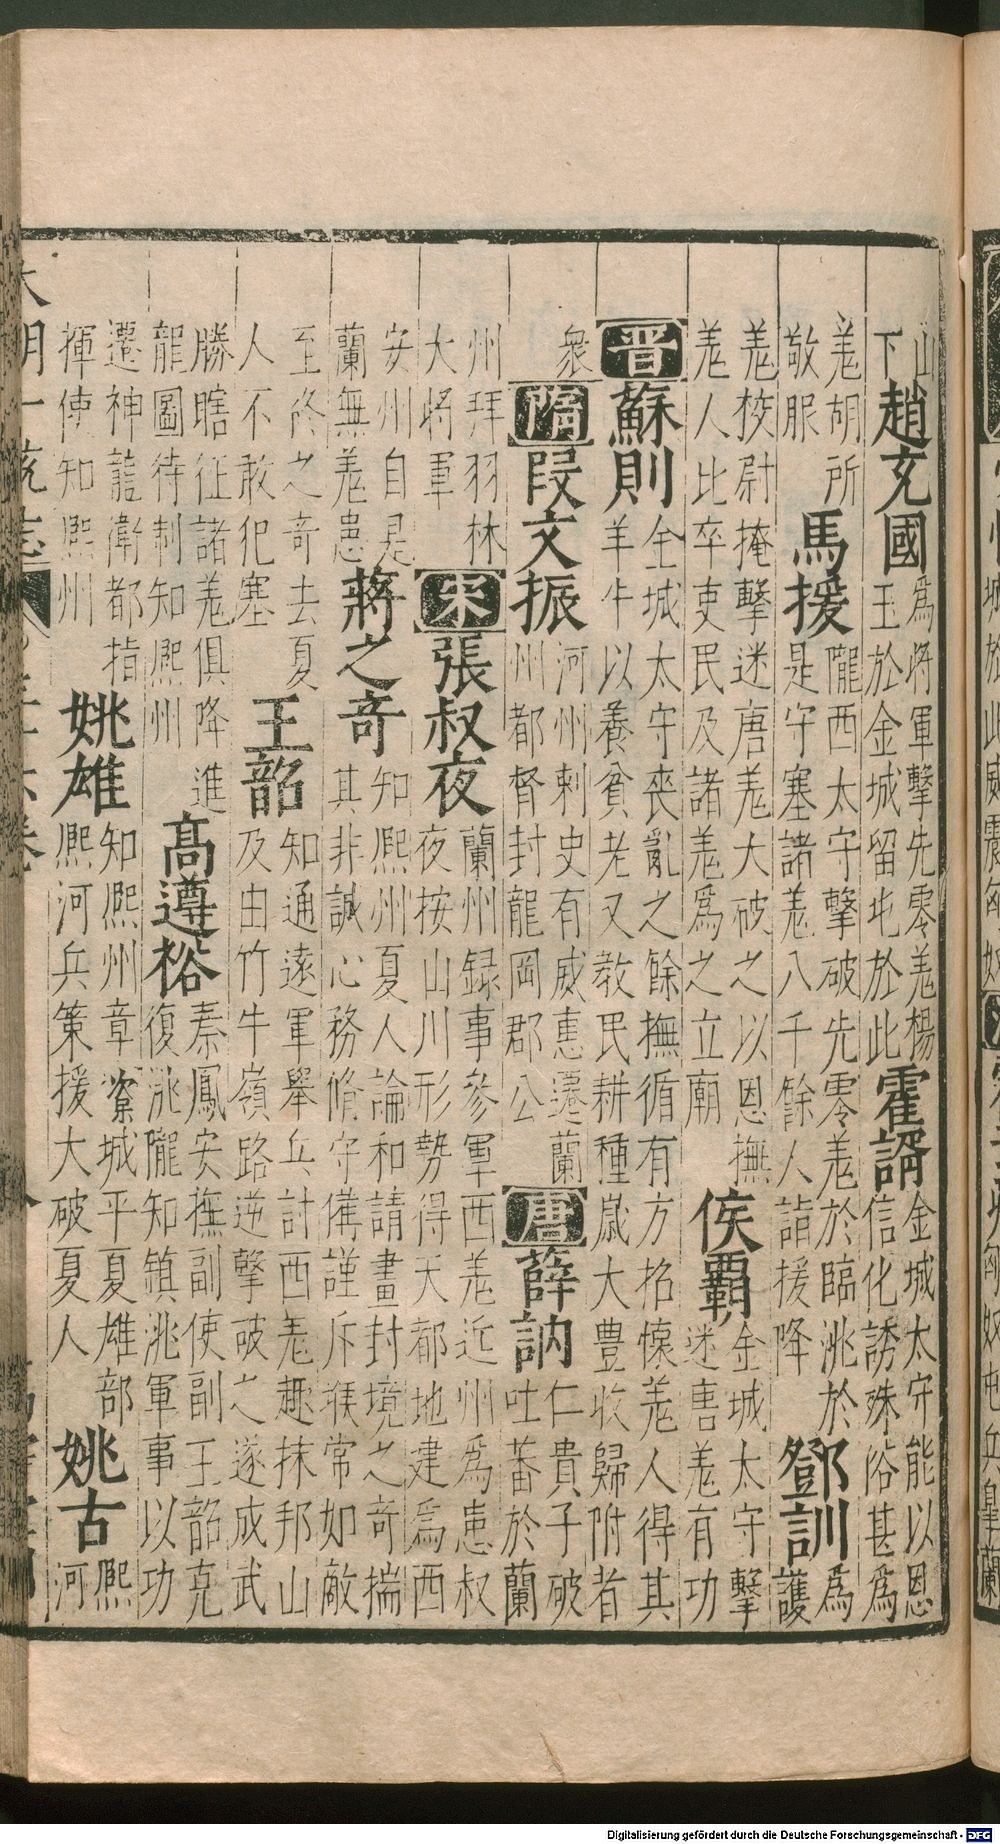 山下趙充國爲將軍擊先零羌楊玉於金城留屯於此霍諝金城太守能以恩信化誘殊俗甚爲
羌胡所敬服馬援隴西太守擊破先零羌於臨洮於是守塞諸羌八千餘人詣援降鄧訓爲護
羌校尉掩擊迷唐羌大破之以恩撫羌人比卒吏民及諸羌爲之立廟侯霸金城太守擊迷唐羌有功
晋蘇則金城太守喪亂之餘撫循有方招懷羌人得其羊牛以養貧老又教民耕種歲大豊收歸附者
衆隋段文振河州剌史有威惠遷蘭州都督封龍岡郡公唐薛訥仁貴子破吐蕃於蘭
州拜羽林大將軍宋張叔夜蘭州録事參軍西羌近州爲患叔夜按山川形勢得天都地建爲西
安州自是蘭無羌患蔣之奇知熈州夏人論和請畫封境之奇揣其非誠心務脩守備謹斥候常如敵
至終之奇去夏人不敢犯塞王韶知通遠軍舉兵討西羌趣抹邦山及由竹牛嶺路逆擊破之遂成武
勝瞎征諸羌俱降進龍圖待制知熈州高遵裕秦鳳安撫副使副王韶克復洮隴知鎮洮軍事以功
遷神龍衛都指揮使知熈州姚雄知熈州章楶城平夏雄部熈河兵策援大破夏人姚古熈河
大明一統志
Digitalisierung gefördert durch die Deutsche Forschungsgemeinschaft - DFG